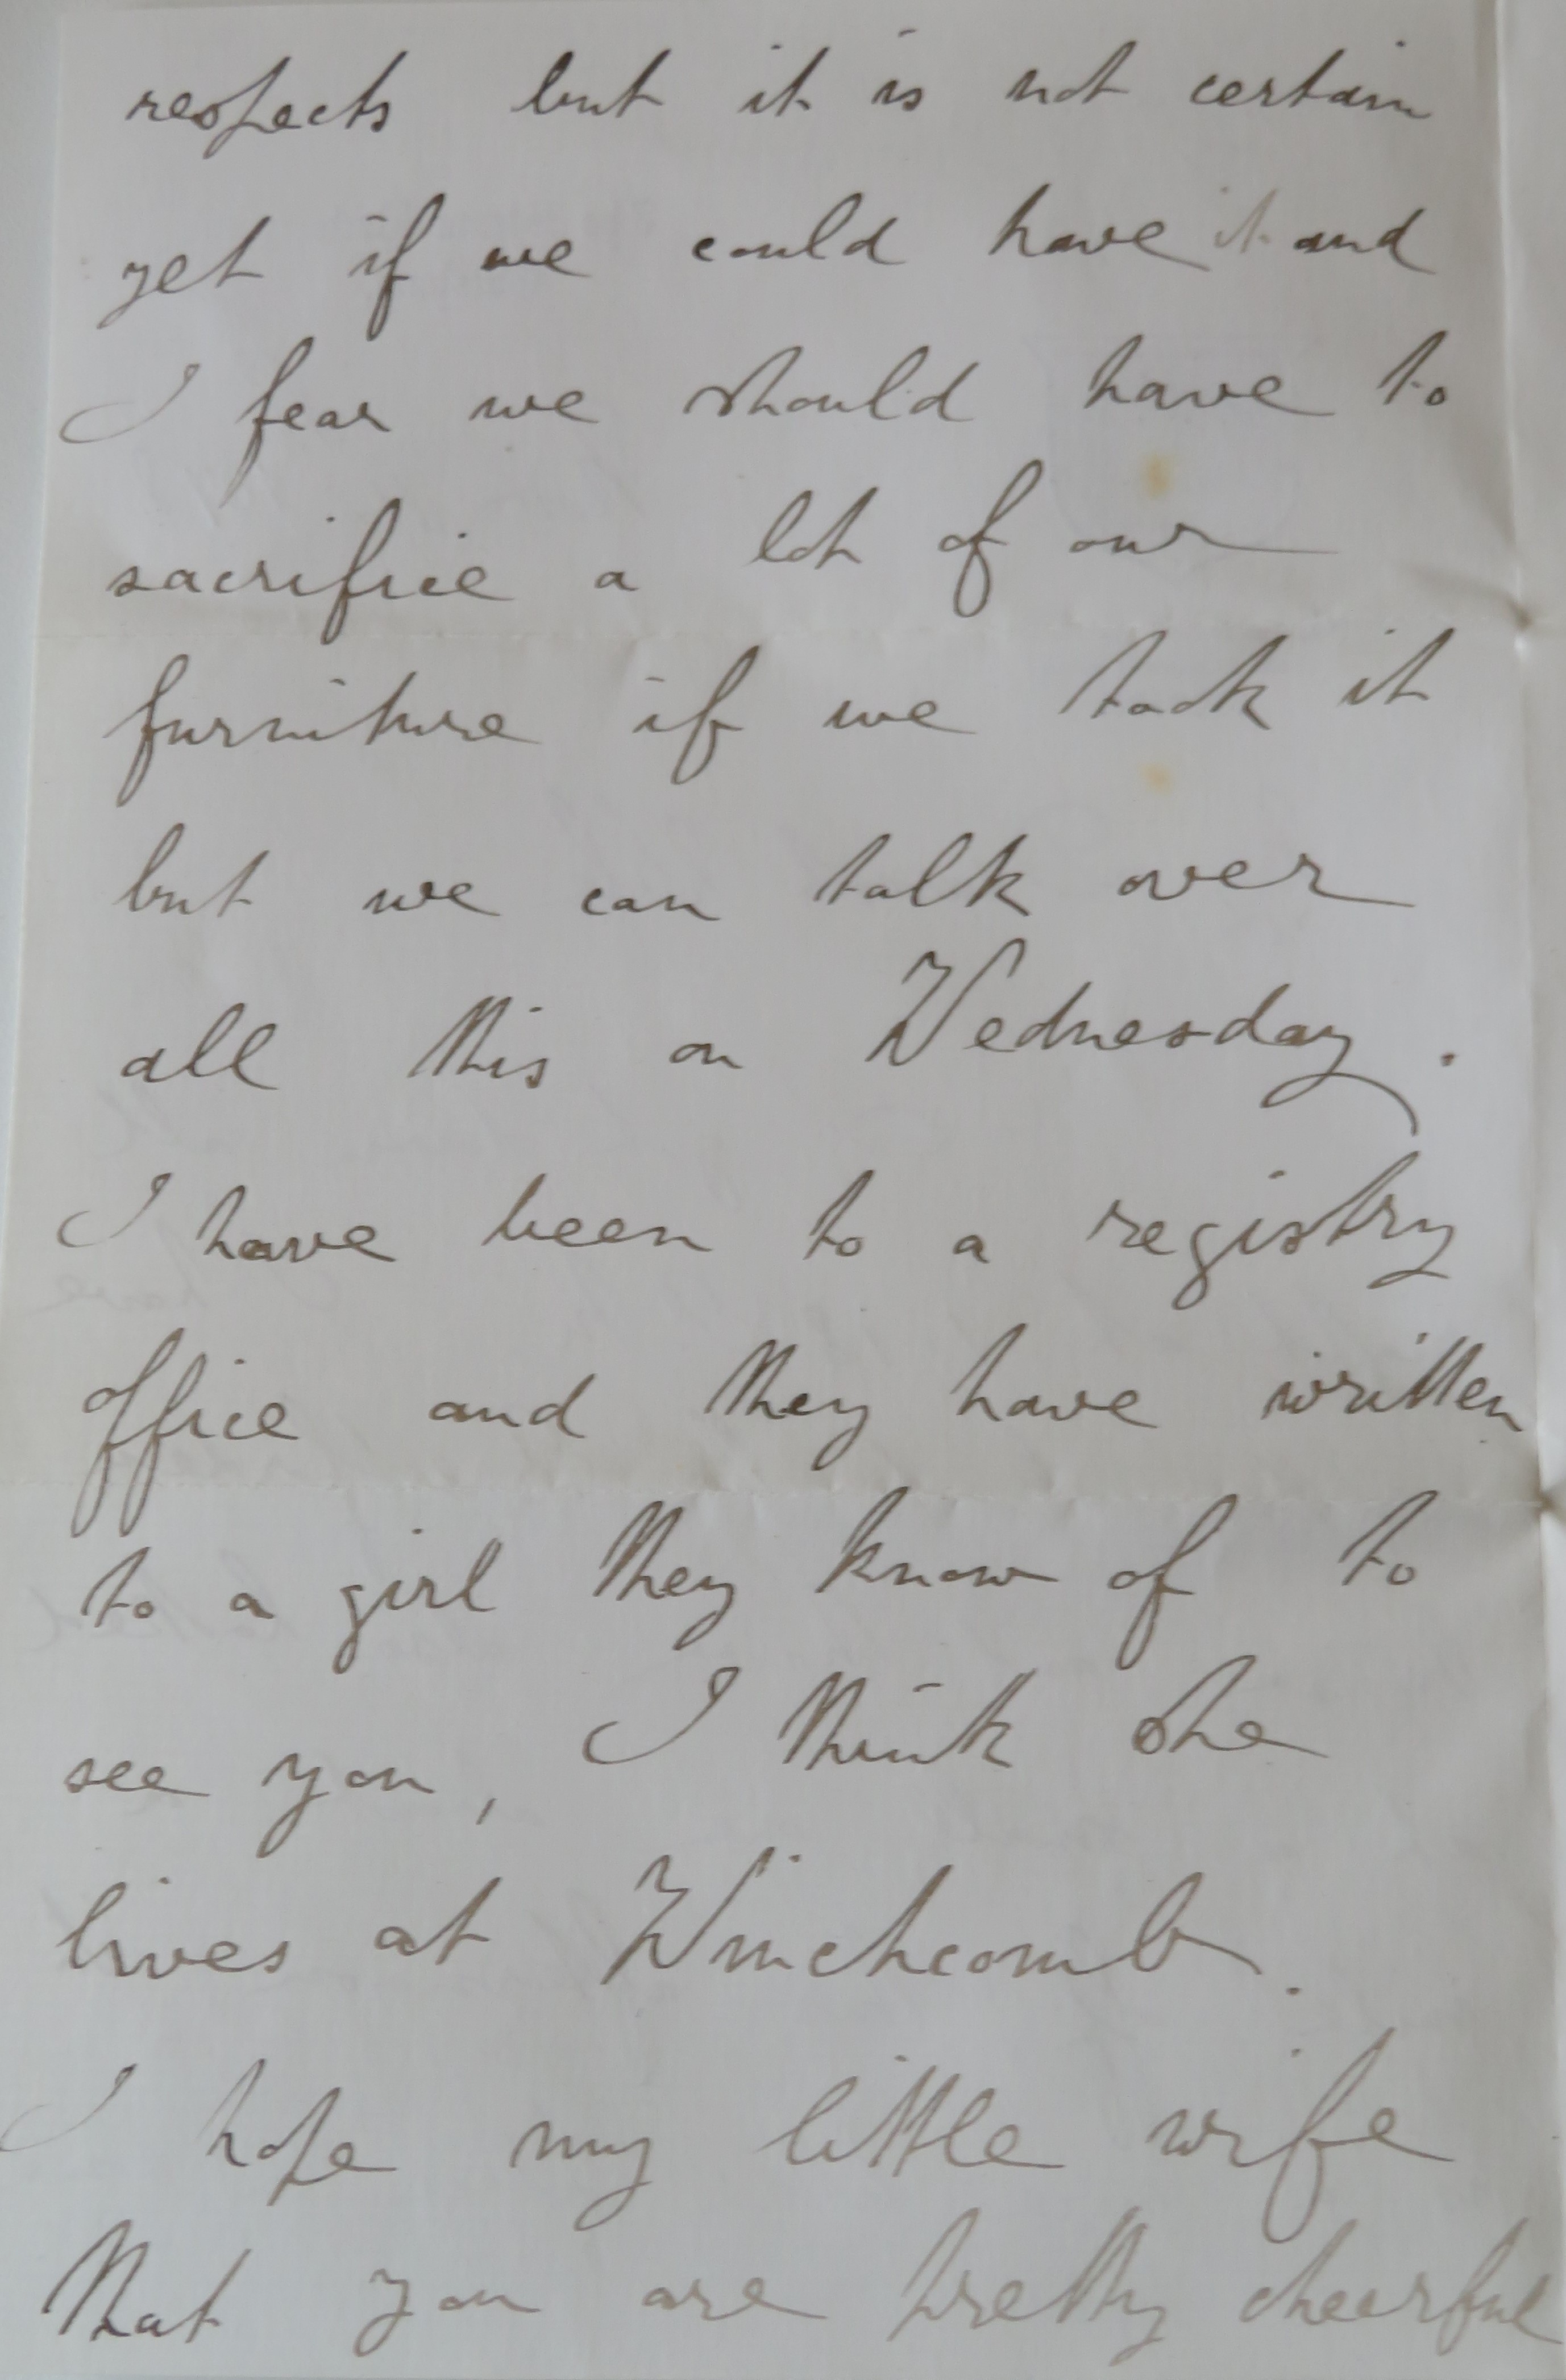 respects but it is not certain
yet if we could have it and
I fear we should have to
sacrifice a lot of our
furniture if we took it
but we can talk over
all this on Wednesday.
I have been to a registry
office and they have written
to a girl they know of to
see you, I think she
lives at Winchcomb.
I hope my little wife
that you are pretty cheerful